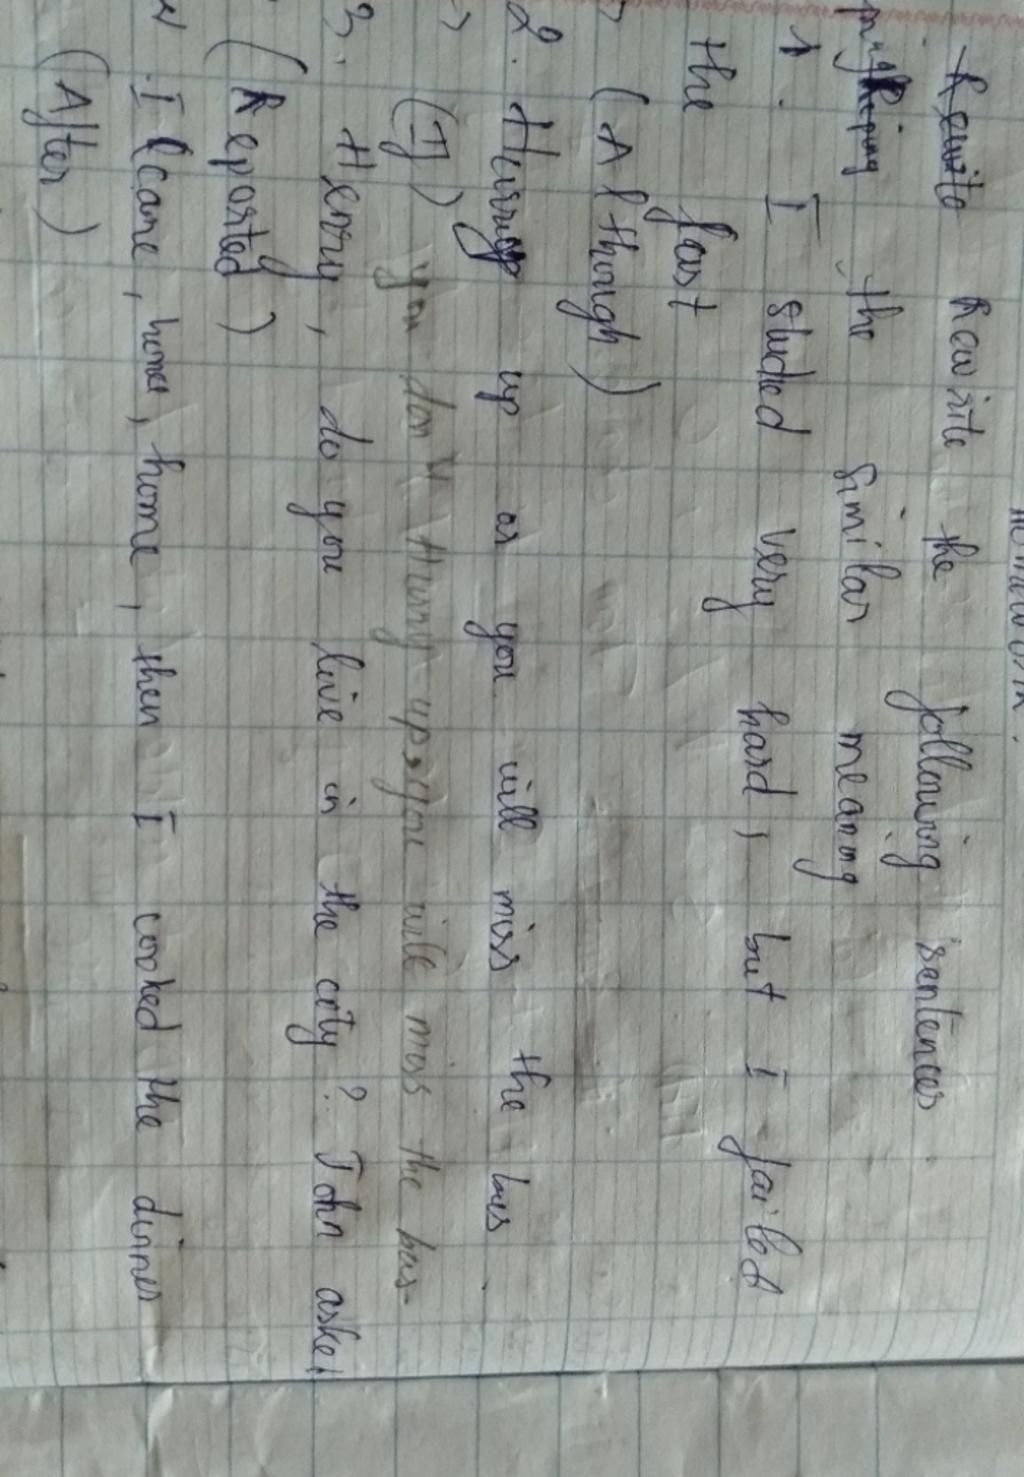 Rewrite the following sentences
keeping the similar meaning
1. I studied very hard, but I failed
the last
(Although)
2. Hurry up or you will miss the bus.
(If) you don't Hurry up, you will miss the bus.
3. Henry, do you live in the city? John asked
(Reported)
I came, home, home, then I cooked the dinner
(After)